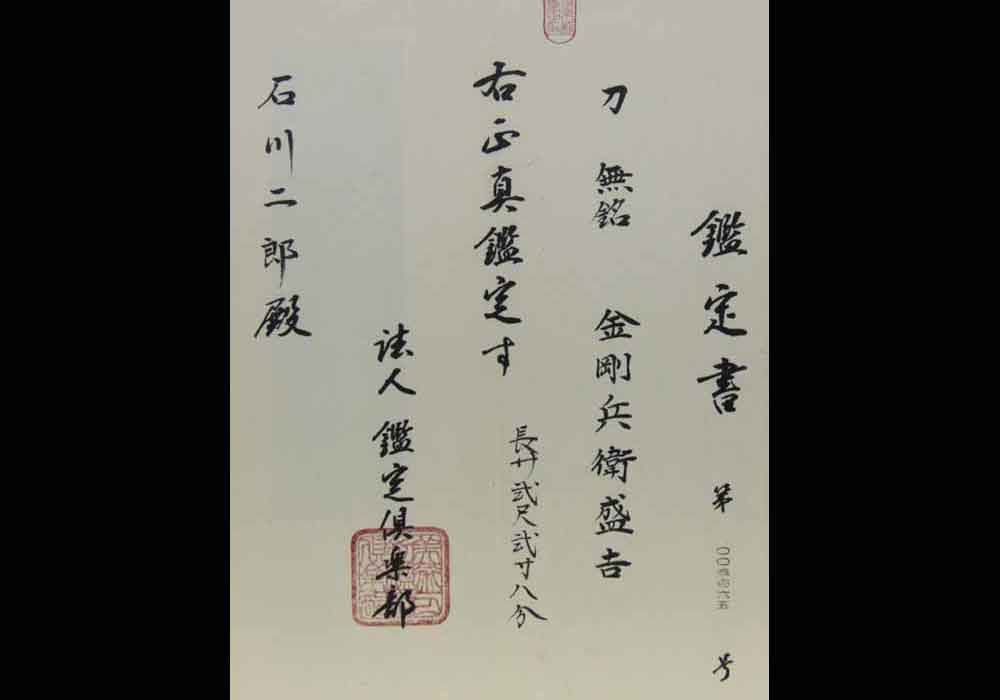 鑑定書 第 号
刀 無銘 金剛兵衛盛吉
長サ弐尺弐寸八分
右正真鑑定す
法人 鑑定倶楽部
石川二郎殿